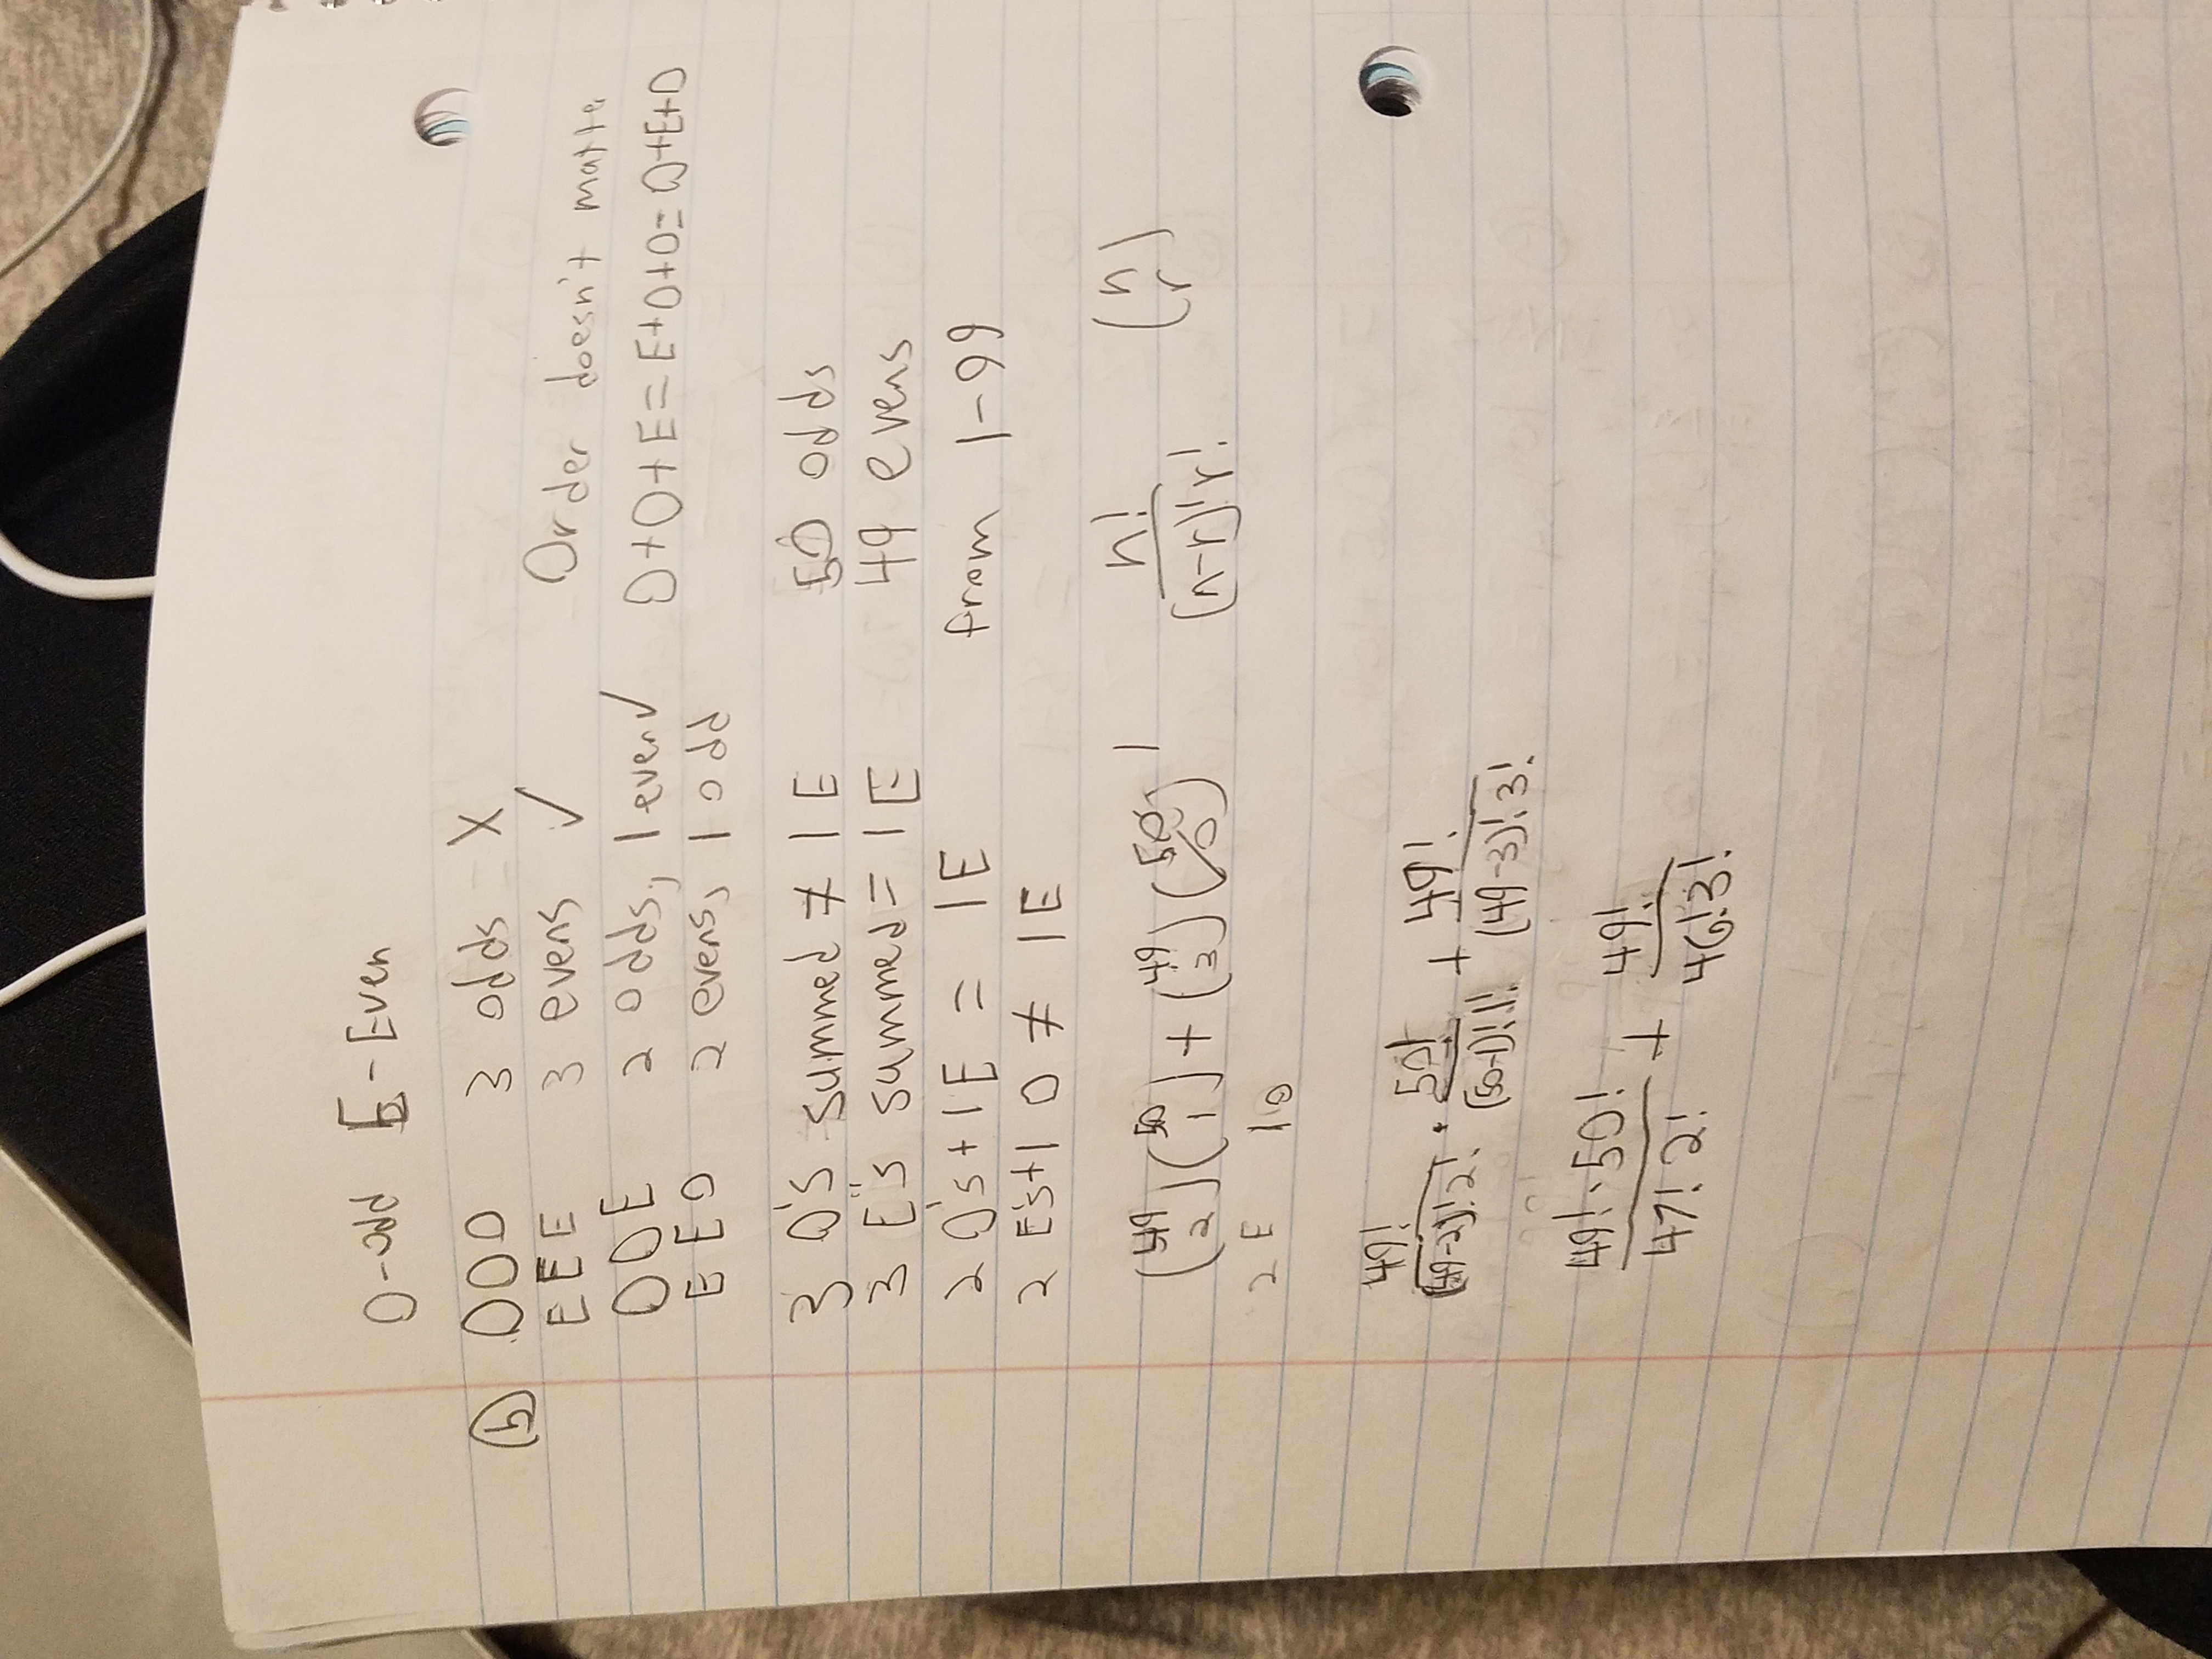 O-odd E-Even
(b) OOO 3 odds = X
EEE 3 evens ✓
OOE 2 odds, 1 even ✓
EEO 2 evens, 1 odd
Order doesn't matte
O+O+E=E+O+O=O+E+O
3 O's summed ≠ 1 E
3 E's summed = 1 E
2 O's + 1E = 1E
2 E's+1 O ≠ 1E
50 odds
49 evens
from 1-99
(49 2)(50 1) + (49 3)(50 0) 1
2 E 1o
n!/(n-r)!r! (n r)
49!/(49-2)!2! · 50!/(50-1)!1! + 49!/(49-3)!3!
49!·50!/47!2! + 49!/46!3!